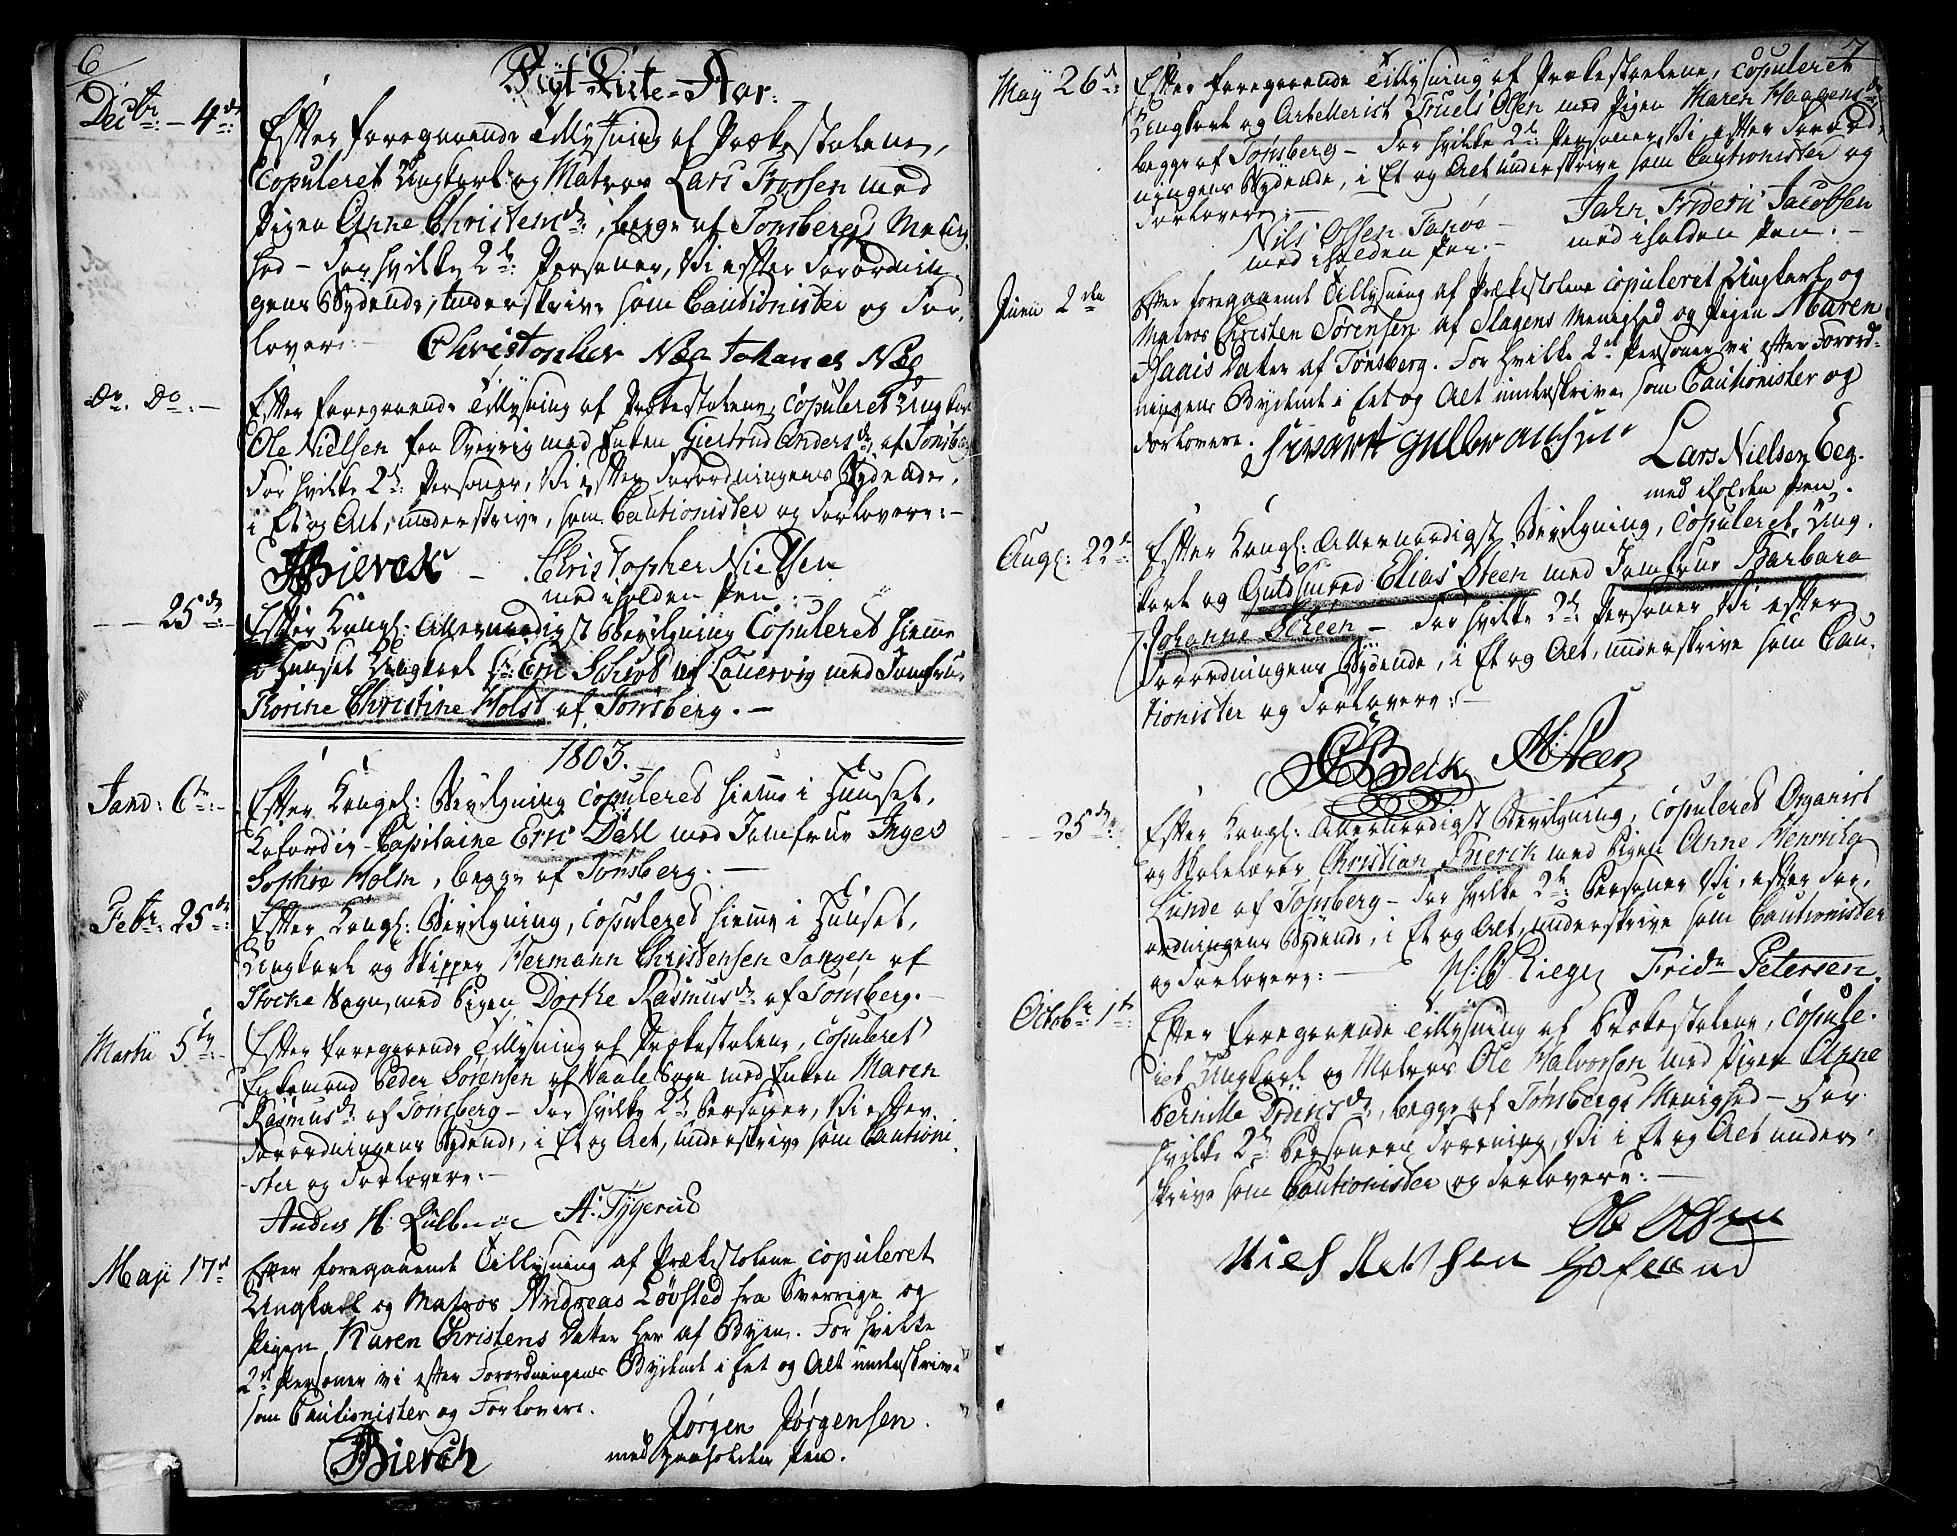 6
Nyt Kirke-Aar:
Decbr: - 4de
Efter foregaaende Tillysning af Prækestolene,
Copuleret Ungkarl og Matros Lars Frossen med
Pigen Anne Christensdr:, begge af Tønsbergs Menig,
hed - For hvilke 2de Personer, Vi efter Forordnin
gens Bydende, underskrive som Cautionister og For,
lover: -
Christopher Næs Johannes Næs
Do. Do: -
Efter foregaaende Tillysning af Prækestolene, Copuleret Ungkarl
Ole Nielsen fra Sverrig med Enken Giertrud Andersdr, af Tønsberg
For hvilke 2de: Personer, Vi efter Forordningens Bydende,
i Et og Alt, underskrive, som Cautionister og Forlovere: -
Bierck - Christopher Nielsen
med iholden Pen: -
- - 25de: -
Efter Kongl: Allernaadigst Bevilgning Copuleret hiemme
i Huuset Ungkarl Sr: Eric Schiøt af Laurvig med Jomfrue
Thorine Christine Holst af Tønsberg. -
1803.
Janu: 6te: -
Efter Kongl: Bevilgning copuleret hiemme i Huuset,
Kofardie-Capitaine Eric Dahl med Jomfrue Inger
Sophie Holm, begge af Tønsberg. -
Febr: 25de:
Efter Kongl: Bevilgning, copuleret hiemme i Huuset,
Ungkarl og Skipper Hermann Christensen Tangen af
Stocke Sogn, med Pigen Dorthe Rasmusdr: af Tønsberg. -
Martii 5te: -
Efter foregaaende Tillysning af Prækestolene, Copuleret
Enkemand Peder Sørensen af Vaale Sogn med Enken Maren
Rasmusdr: af Tønsberg - For hvilke 2de Personer, Vi efter
Forordningens Bydende, i Et og Alt, underskrive som Cautioni,
ster og Forlovere: -
Anders H. A. Tygerud
Maji 17de
Efter foregaaende Tillysning af Prækestolene copuleret
Ungkarl og Matros Andreas Løvsted fra Sverrige og
Pigen Karen Christens Datter her af Byen. For hvilke
2de Personer vi efter Forordningens Bydende i Eet og Alt underskrive
som Cautionister og Forlovere.
Bierck Jørgen Jørgensen.
med paaholden Pen.
7
May 26de:
Efter foregaaende Tillysning af Prækestolene, Copuleret
Ungkarl og Artellerist Truels Olsen med Pigen Maren Haagensdr
begge af Tønsberg - For hvilke 2de Personer, Vi efter Forord,
ningens Bydende, i Et og Alt underskrive som Cautionister og
Forlovere: -
Nils Olsen Farøe - Jahn Frideric Jacobsen
med iholden Pen: - med iholden Pen: -
Junii 2den
Efter foregaaende Tillysning af Prækestolene copuleret Ungkarl og
Matros Christen Sørensen af Slagens Menighed og Pigen Maren
Haais Datter af Tønsberg. For hvilke 2de Personer vi efter Forord-
ningens Bydende i Eet og Alt underskrive som Cautionister og
Forlovere.
Sivart Gulbransen
Lars Nielsen Eeg.
med iholden Pen.
Augs: 22de:
Efter Kongl: Allernaadigst Bevilgning, Copuleret, Ung,
karl og Guldsmed Elias Steen med Jomfrue Barbara
Johanne Scheen - For hvilke 2de Personer Vi efter
Forordningens Bydende, i Et og Alt, underskrive som Cau,
tionister og Forlovere: -
Beck Steen
- - 25de:
Efter Kongl: Allernaadigst Bevilgning, Copuleret Organist
og Skolelærer Christian Bierck med Pigen Anne Henrika
Lunde af Tønsberg - For hvilke 2de: Personer Vi, efter For,
ordningens Bydende, i Et og Alt, underskrive som Cautionister
og Forlovere: - Fridr Petersen.
Octobr 1te:
Efter foregaaende Tillysning af Prækestolene, Copule,
ret Ungkarl og Matros Ole Halvorsen med Pigen Anne
Pernille Brinsdr, begge af Tønsbergs Menighed - For
hvilke 2de Personers Forening, Vi i Et og Alt under,
skrive som Cautionister og Forlovere: -
Ole Olsen
Niels